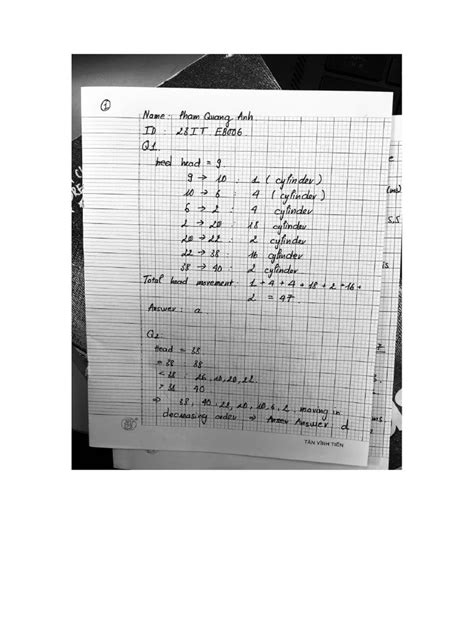 1
Name: Pham Quang Anh
ID: 23IT EB006
Q1.
head = 9.
9 → 10 : 1 (cylinder)
10 → 6 : 4 (cylinder)
6 → 2 : 4 cylinder
2 → 20 : 18 cylinder
20 → 22 : 2 cylinder
22 → 38 : 16 cylinder
38 → 40 : 2 cylinder
Total head movement: 1 + 4 + 4 + 18 + 2 + 16 +
2 = 47.
Answer: a
Q2:
head = 38
= 38 : 38
> 38 : 40
decreasing order ⇒ Answer d
TÂN VĨNH TIẾN